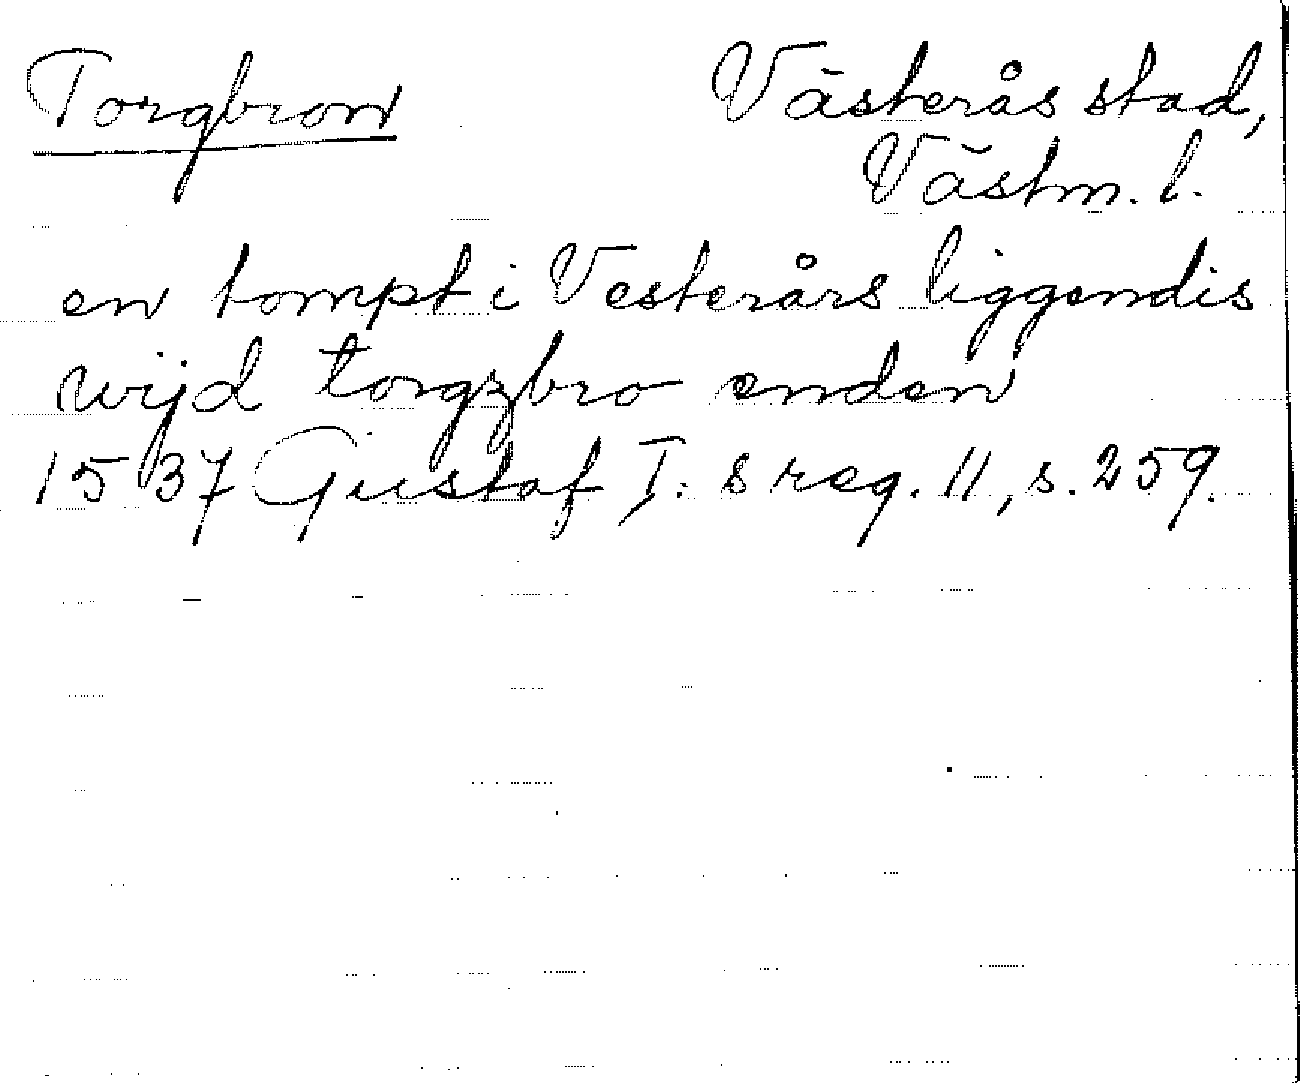 Torgbron
Västerås stad,
Västm. l.
en tompt i Vesterårs liggendis
wijd torgzbro enden
1537 Gustaf I:s reg. 11, s. 259.